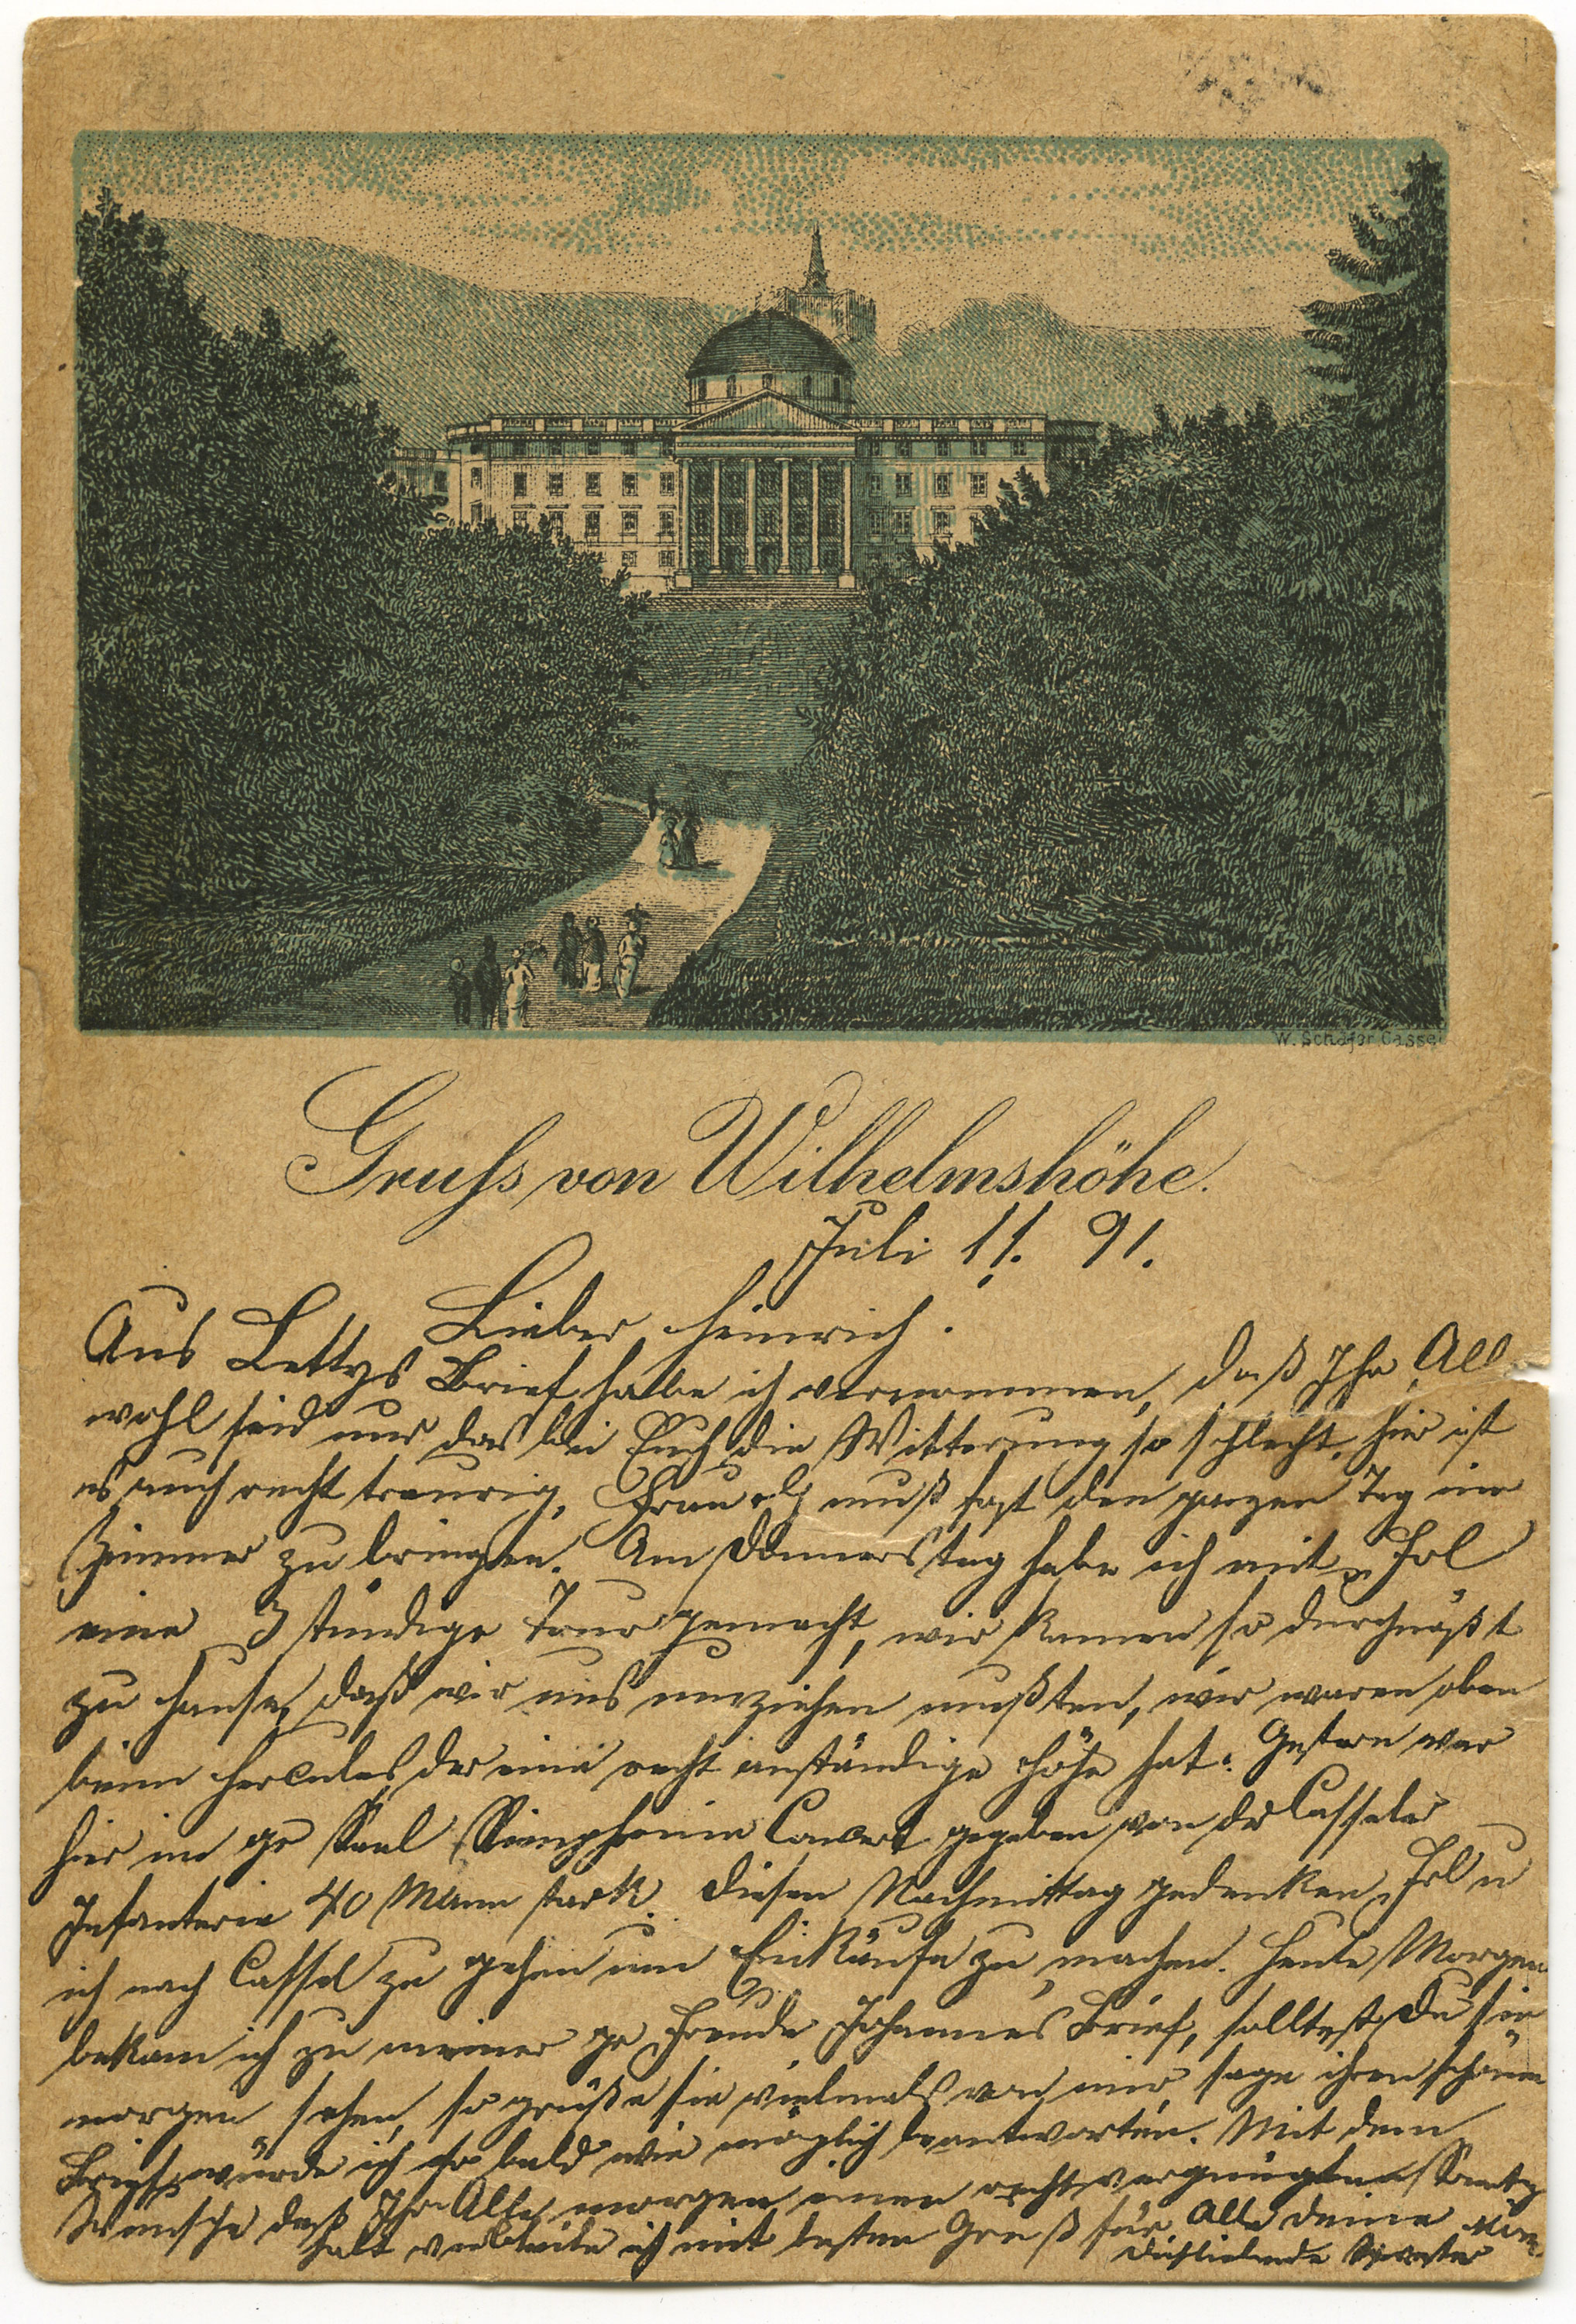 W. Schäfer Cassel
Gruss von Wilhelmshöhe.
Juli 11. 91.
Lieber Heinrich.
Aus Lettys Brief habe ich vernommen, daß Ihr All
wohl seid und das bei Euch die Witterung so schlecht, hier ist
es auch recht traurig, Frau muß fast den ganzen Tag im
Zimmer zu bringen. Am Donnerstag habe ich mit Frl
eine 3 stündige Tour gemacht, wir kamen so durchnäßt
zu Hause, daß wir uns umziehen mußten, wir waren oben
beim Hercules, der eine recht anständige Höhe hat. Gestern war
hier im gr Saal Simphonie Concert gegeben von der Casseler
Infanterie 40 Mann stark. Diesen Nachmittag gedenken Frl u
ich nach Cassel zu gehen um Einkäufe zu machen. Heute Morgen
bekam ich zu meiner gr Freude Johannes Brief, solltest Du sie
morgen sehen, so grüße sie vielmals von mir, sage ihren schönen
Brief würde ich so bald wie möglich beantworten. Mit dem
Wunsche daß Ihr Alle morgen einen recht vergnügten Sontag
halt verbleibe ich mit besten Gruß für Alle deine
Dichliebende Schwester